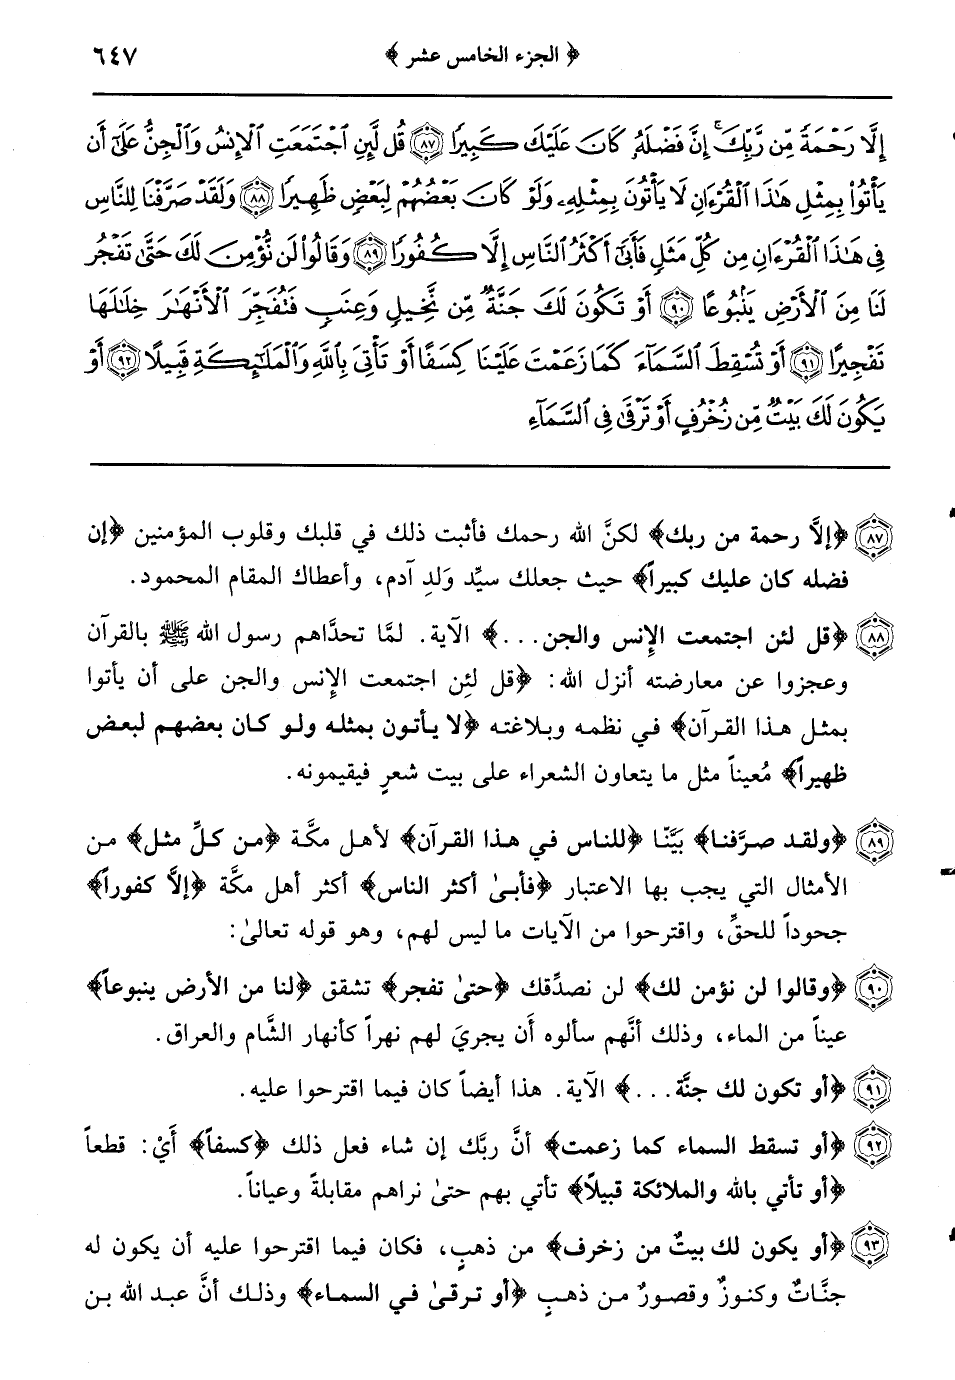 ﴿ الجزء الخامس عشر ﴾ ٦٤٧
إِلَّا رَحْمَةً مِّن رَّبِّكَ ۚ إِنَّ فَضْلَهُۥ كَانَ عَلَيْكَ كَبِيرًا ٨٧ قُل لَّئِنِ ٱجْتَمَعَتِ ٱلْإِنسُ وَٱلْجِنُّ عَلَىٰٓ أَن
يَأْتُوا۟ بِمِثْلِ هَٰذَا ٱلْقُرْءَانِ لَا يَأْتُونَ بِمِثْلِهِۦ وَلَوْ كَانَ بَعْضُهُمْ لِبَعْضٍ ظَهِيرًا ٨٨ وَلَقَدْ صَرَّفْنَا لِلنَّاسِ
فِى هَٰذَا ٱلْقُرْءَانِ مِن كُلِّ مَثَلٍ فَأَبَىٰٓ أَكْثَرُ ٱلنَّاسِ إِلَّا كُفُورًا ٨٩ وَقَالُوا۟ لَن نُّؤْمِنَ لَكَ حَتَّىٰ تَفْجُرَ
لَنَا مِنَ ٱلْأَرْضِ يَنۢبُوعًا ٩٠ أَوْ تَكُونَ لَكَ جَنَّةٌ مِّن نَّخِيلٍ وَعِنَبٍ فَتُفَجِّرَ ٱلْأَنْهَٰرَ خِلَٰلَهَا
تَفْجِيرًا ٩١ أَوْ تُسْقِطَ ٱلسَّمَآءَ كَمَا زَعَمْتَ عَلَيْنَا كِسَفًا أَوْ تَأْتِىَ بِٱللَّهِ وَٱلْمَلَٰٓئِكَةِ قَبِيلًا ٩٢ أَوْ
يَكُونَ لَكَ بَيْتٌ مِّن زُخْرُفٍ أَوْ تَرْقَىٰ فِى ٱلسَّمَآءِ
٨٧ ﴿إلاَّ رحمة من ربك﴾ لكنَّ الله رحمك فأثبت ذلك في قلبك وقلوب المؤمنين ﴿إن
فضله كان عليك كبيراً﴾ حيث جعلك سيِّد وَلَدِ آدم، وأعطاك المقام المحمود.
٨٨ ﴿قل لئن اجتمعت الإِنس والجن...﴾ الآية. لمَّا تحدَّاهم رسول الله ﷺ بالقرآن
وعجزوا عن معارضته أنزل الله: ﴿قل لئِن اجتمعت الإِنس والجن على أن يأتوا
بمثل هذا القرآن﴾ في نظمه وبلاغته ﴿لا يأتون بمثله ولو كان بعضهم لبعض
ظهيراً﴾ مُعيناً مثل ما يتعاون الشعراء على بيت شعرٍ فيقيمونه.
٨٩ ﴿ولقد صرَّفنا﴾ بَيَّنّا ﴿للناس في هذا القرآن﴾ لأهل مكَّة ﴿من كلِّ مثل﴾ من
الأمثال التي يجب بها الاعتبار ﴿فأبىٰ أكثر الناس﴾ أكثر أهل مكَّة ﴿إلاَّ كفوراً﴾
جحوداً للحقِّ، واقترحوا من الآيات ما ليس لهم، وهو قوله تعالىٰ:
٩٠ ﴿وقالوا لن نؤمن لك﴾ لن نصدِّقك ﴿حتىٰ تفجر﴾ تشقق ﴿لنا من الأرض ينبوعاً﴾
عيناً من الماء، وذلك أنَّهم سألوه أن يجريَ لهم نهراً كأنهار الشَّام والعراق.
٩١ ﴿أو تكون لك جنَّة...﴾ الآية. هذا أيضاً كان فيما اقترحوا عليه.
٩٢ ﴿أو تسقط السماء كما زعمت﴾ أنَّ ربَّك إن شاء فعل ذلك ﴿كسفاً﴾ أَيْ: قطعاً
﴿أو تأتي بالله والملائكة قبيلاً﴾ تأتي بهم حتىٰ نراهم مقابلةً وعياناً.
٩٣ ﴿أو يكون لك بيتٌ من زخرف﴾ من ذهبٍ، فكان فيما اقترحوا عليه أن يكون له
جنَّاتٌ وكنوزٌ وقصورٌ من ذهبٍ ﴿أو ترقىٰ في السماء﴾ وذلك أنَّ عبد الله بن